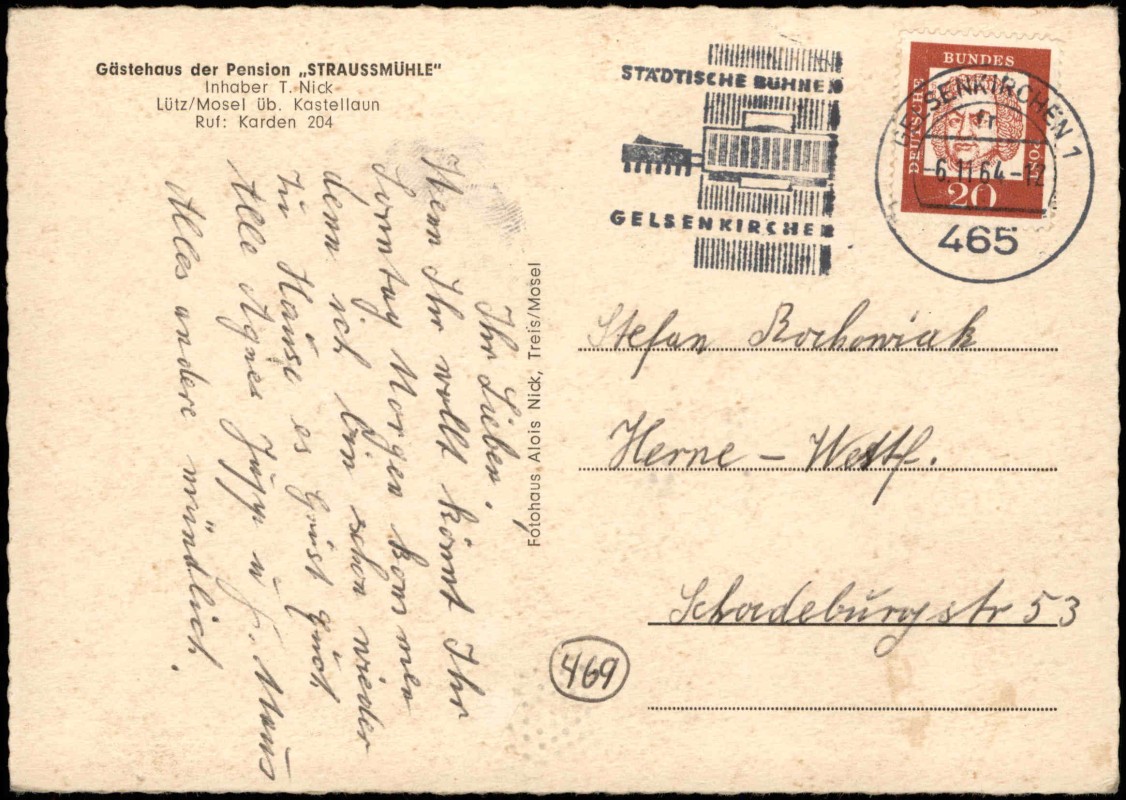 Gästehaus der Pension „STRAUSSMÜHLE"
Inhaber T. Nick
Lütz/Mosel üb. Kastellaun
Ruf: Karden 204
STÄDTISCHE BÜHNEN
GELSENKIRCHEN
GELSENKIRCHEN 1
-6.11.64-12
465
DEUTSCHE
BUNDES
POST
20
Ihr Lieben!
Wenn Ihr wollt könnt Ihr
Sonntag Morgen kommen
denn ich bin schon wieder
zu Hause es grüst Euch
Alle Agnes Jupp u
Alles andere mündlich.
Fotohaus Alois Nick, Treis/Mosel
Stefan Rochowiak
Herne - Westf.
Schadeburgstr 53
469